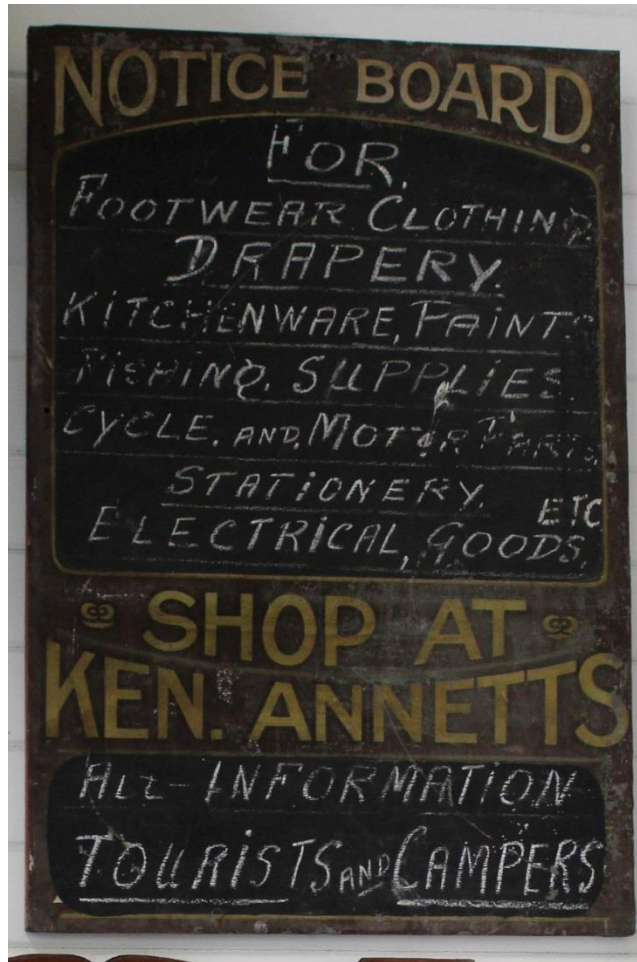 NOTICE BOARD.
FOR.
FOOTWEAR. CLOTHING.
DRAPERY.
KITCHENWARE, PAINTS
FISHING. SUPPLIES.
CYCLE. AND. MOTOR PARTS,
STATIONERY. ETC
ELECTRICAL, GOODS,
SHOP AT
KEN. ANNETTS
ALL-INFORMATION
TOURISTS AND CAMPERS